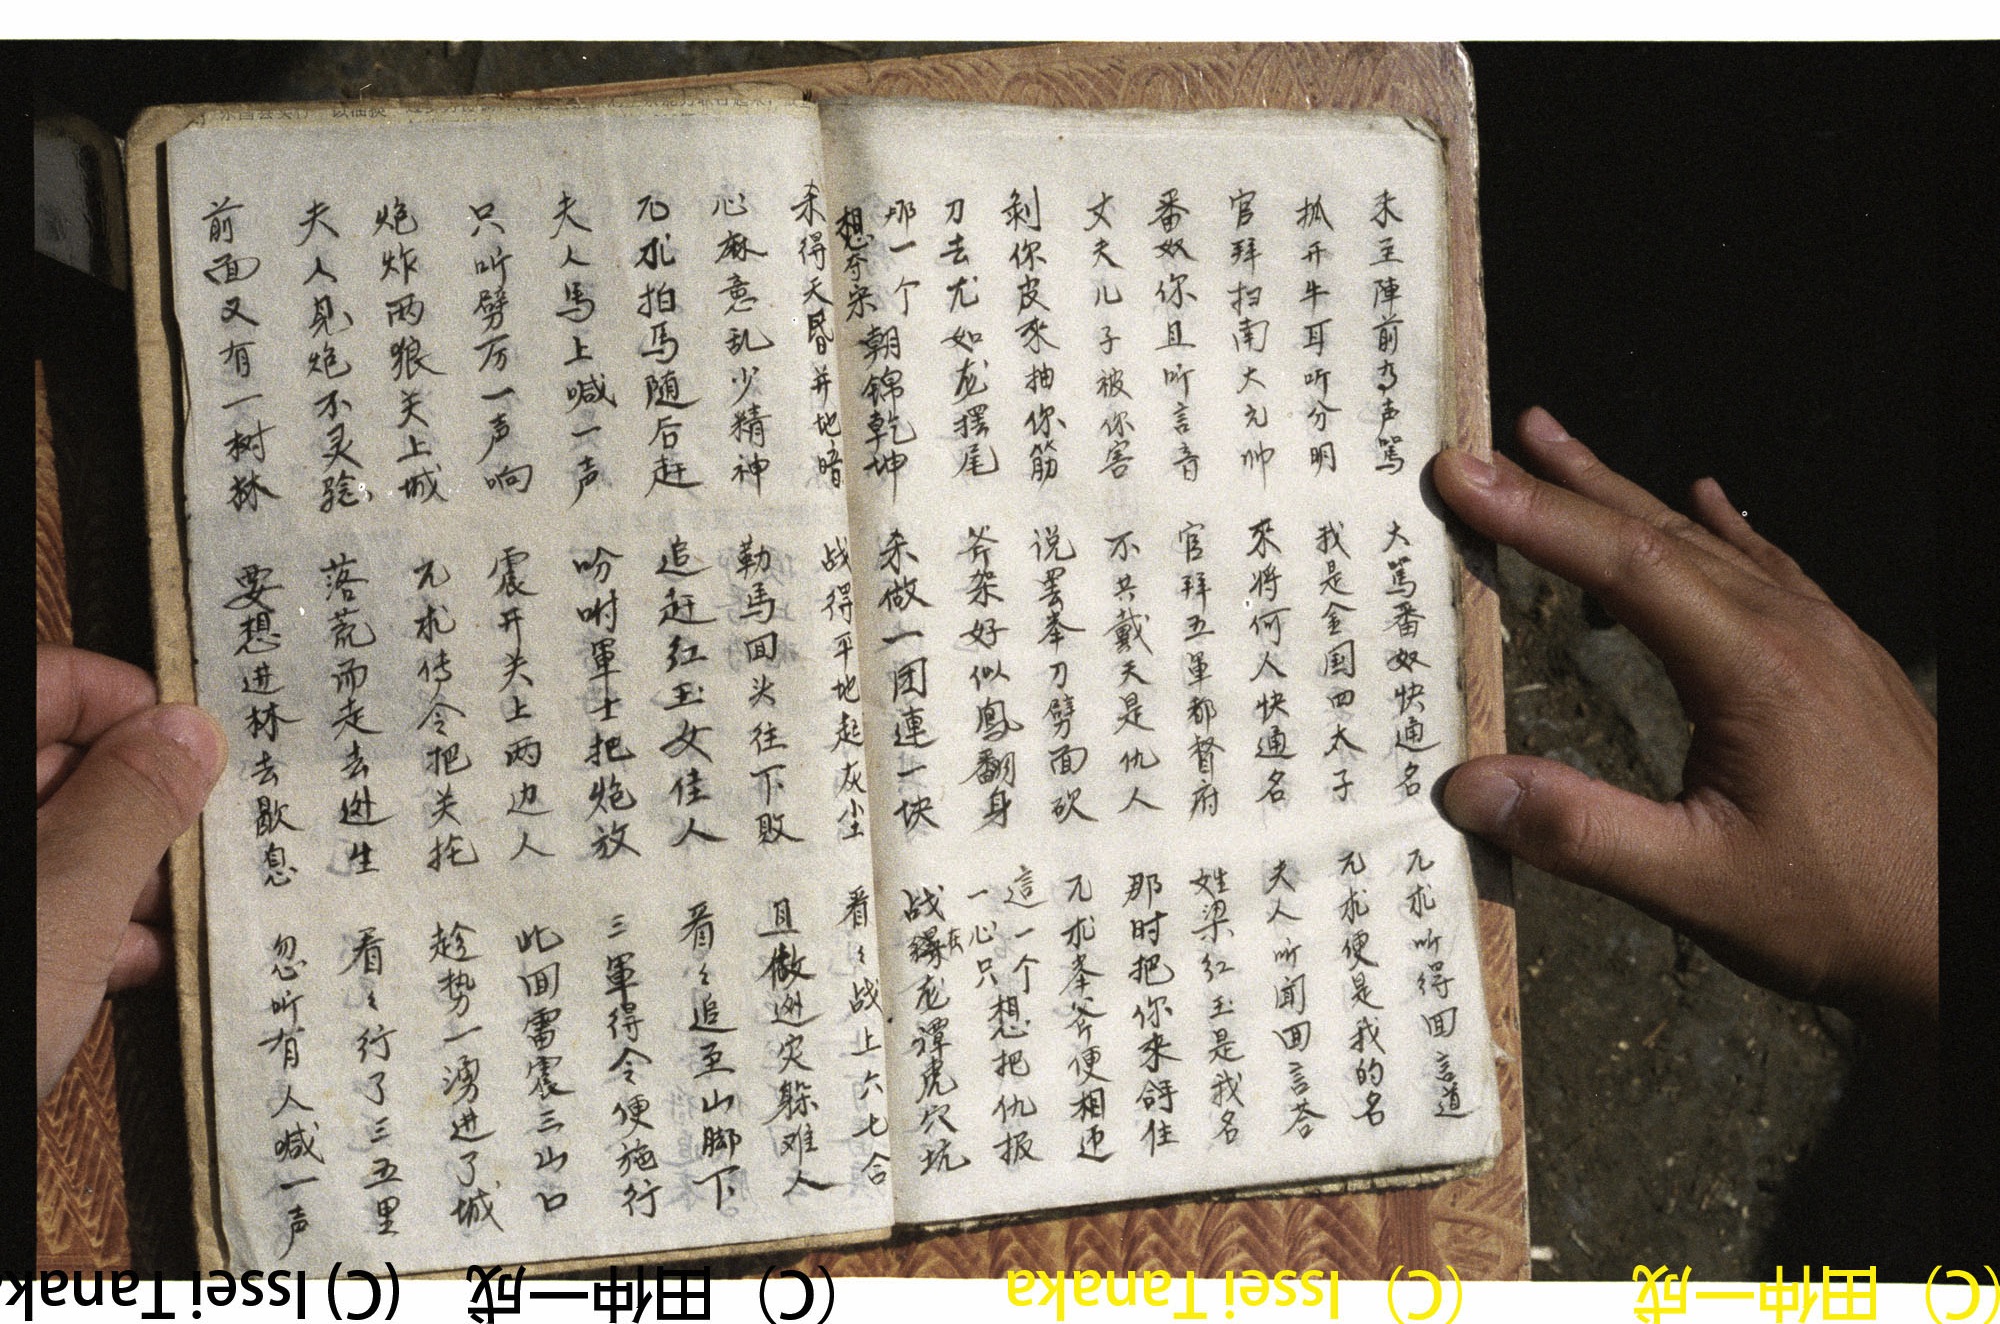 来至陣前高声骂 大骂番奴快通名 兀朮听得回言道
抓开牛耳听分明 我是金国四太子 兀朮便是我的名
官拜扫南大元帅 來将何人快通名 夫人听闻回言答
番奴你且听言音 官拜五軍都督府 姓梁红玉是我名
丈夫儿子被你害 不共戴天是仇人 那时把你来住
剥你皮來抽你筋 说罢举刀劈面砍 兀朮举斧便相迎
刀去尤如龙摆尾 斧架好似鳳翻身 這一个一心只想把仇报
那一个想夺宋朝锦乾坤 杀做一团連一块 战在龙潭虎穴坑
杀得天昏并地暗 战得平地起灰尘 看々战上六七合
心麻意乱少精神 勒馬回头往下败 且做逃灾躲难人
兀朮拍馬随后赶 追赶红玉女佳人 看々追至山脚下
夫人馬上喊一声 吩咐軍士把炮放 三軍得令便施行
只听劈厉一声响 震开关上两边人 此回雷震三山口
炮炸两狼关上城 兀朮传令把关抢 趁势一湧进了城
夫人見炮不灵验 落荒而走去逃生 看々行了三五里
前面又有一树林 要想进林去歇息 忽听有人喊一声
(C) 田仲一成 (C) Issei Tanaka
(C) 田仲一成 (C) Issei Tanak